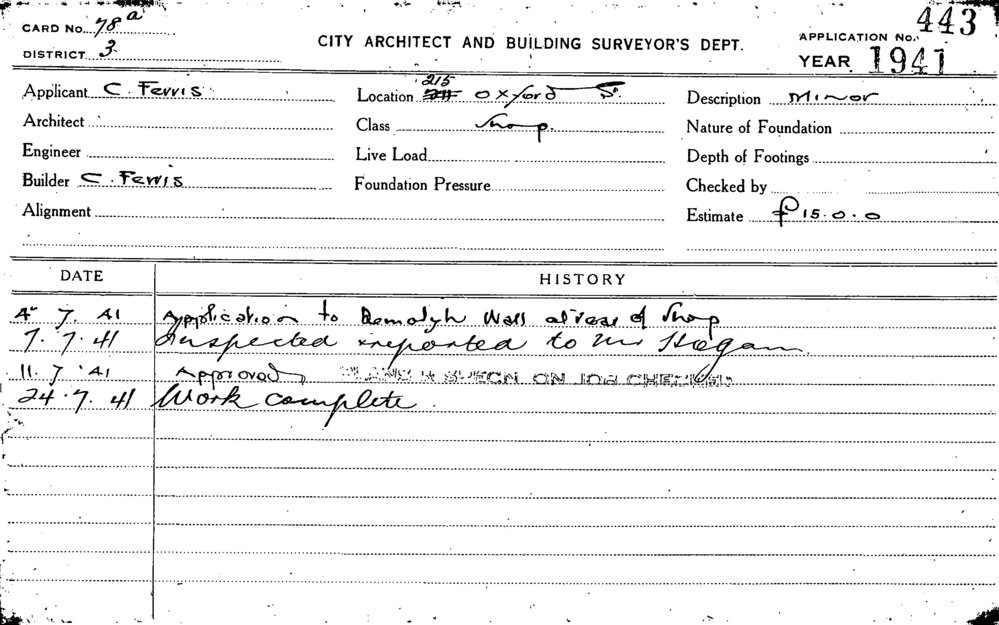 CARD No. 78a
DISTRICT 3
CITY ARCHITECT AND BUILDING SURVEYOR'S DEPT.
APPLICATION No. 443
YEAR 1941
Applicant C. Ferris Location 215 Oxford St. Description Minor
Architect Class Shop. Nature of Foundation
Engineer Live Load Depth of Footings
Builder C. Ferris Foundation Pressure Checked by
Alignment Estimate £15.0.0
DATE HISTORY
4 7. 41 Application to Demolish Wall at rear of Shop
7. 7. 41 Inspected & reported to Mr Hogan
11. 7. 41 Approved PLANS & SPECN ON JOB CHECKED
24. 7. 41 Work complete.